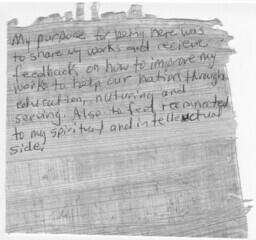 My purpose for being here was
to share my works and recieve
feedback on how to improve my
works to help our nation through
education, nuturing and
serving. Also to feel reconnected
to my spiritual and intellectual
side.